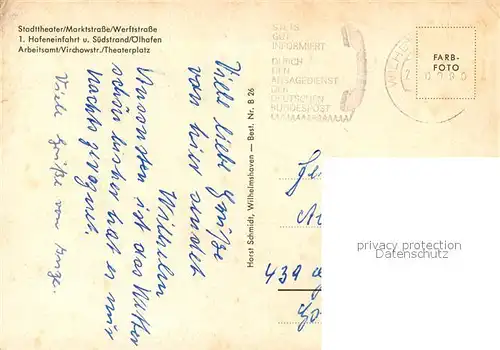 Stadttheater/Marktstraße/Werftstraße
1. Hafeneinfahrt u. Südstrand/Ölhafen
Arbeitsamt/Virchowstr./Theaterplatz
STETS
GUT
INFORMIERT
DURCH
DEN
ANSAGEDIENST
DER
DEUTSCHEN
BUNDESPOST
WILHE
FARB-
FOTO
Viele liebe Grüße
von hier sendet
Wilhelm
Ansonsten ist das Wetter
schön bisher hat es nur
Nachts geregnet.
Viele Grüße von
Horst Schmidt, Wilhelmshaven — Best. Nr. B 26
439
privacy protection
Datenschutz